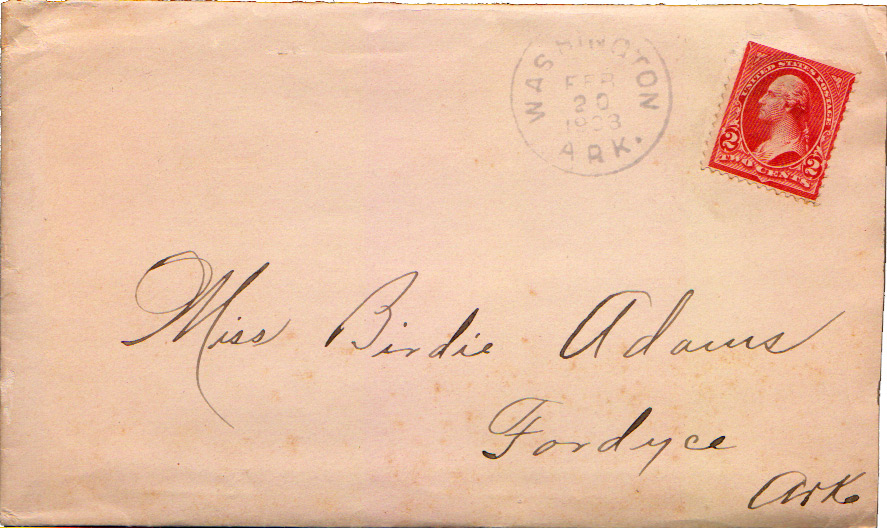 WASHINGTON
FEB
20
ARK.
UNITED STATES POSTAGE
2 2
TWO CENTS
Miss Birdie Adams
Fordyce
Ark